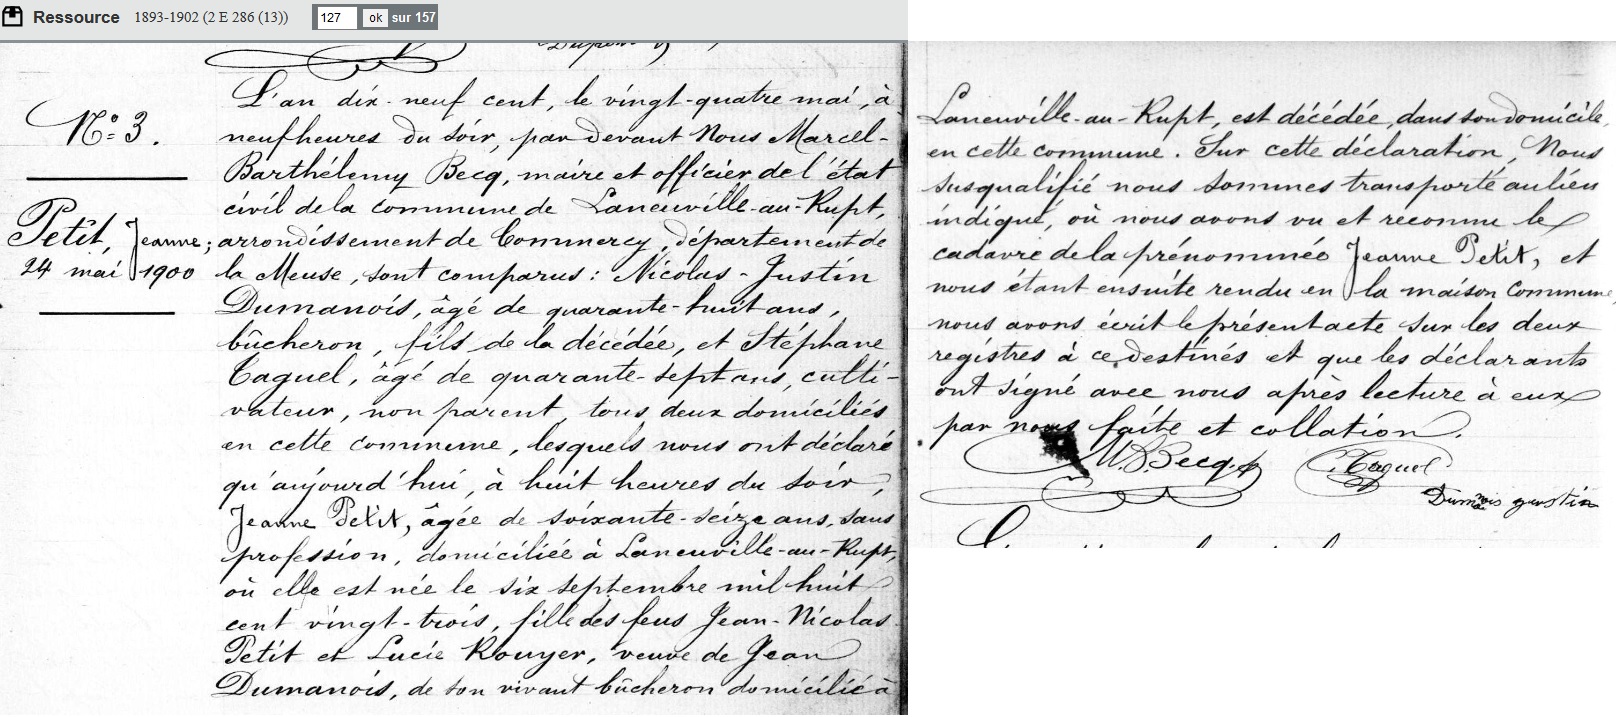 Ressource 1893-1902 (2 E 286 (13)) 127 ok sur 157
N.º 3.
Petit, Jeanne;
24 mai 1900
L'an dix-neuf cent, le vingt-quatre mai, à
neuf heures du soir, par devant Nous Marcel-
Barthélemy Becq, maire et officier de l'état
civil de la commune de Laneuville-au-Rupt,
arrondissement de Commercy, département de
la Meuse, sont comparus : Nicolas-Justin
Dumanois, âgé de quarante-huit ans,
bûcheron, fils de la décédée, et Stéphane
Caguel, âgé de quarante-sept ans, culti-
vateur, non parent, tous deux domiciliés
en cette commune, lesquels nous ont déclaré
qu'aujourd'hui, à huit heures du soir,
Jeanne Petit, âgée de soixante-seize ans, sans
profession, domiciliée à Laneuville-au-Rupt,
où elle est née le six septembre mil huit
cent vingt-trois, fille des feus Jean-Nicolas
Petit et Lucie Rouyer, veuve de Jean
Dumanois, de son vivant bûcheron domicilié à
Laneuville-au-Rupt, est décédée, dans son domicile,
en cette commune. Sur cette déclaration, Nous
susqualifié nous sommes transporté au lieu
indiqué, où nous avons vu et reconnu le
cadavre de la prénommée Jeanne Petit, et
nous étant ensuite rendu en la maison commune,
nous avons écrit le présent acte sur les deux
registres à ce destinés et que les déclarants
ont signé avec nous après lecture à eux
par nous faite et collation.
M. B. Becq C. Caguel
Dumanois justin